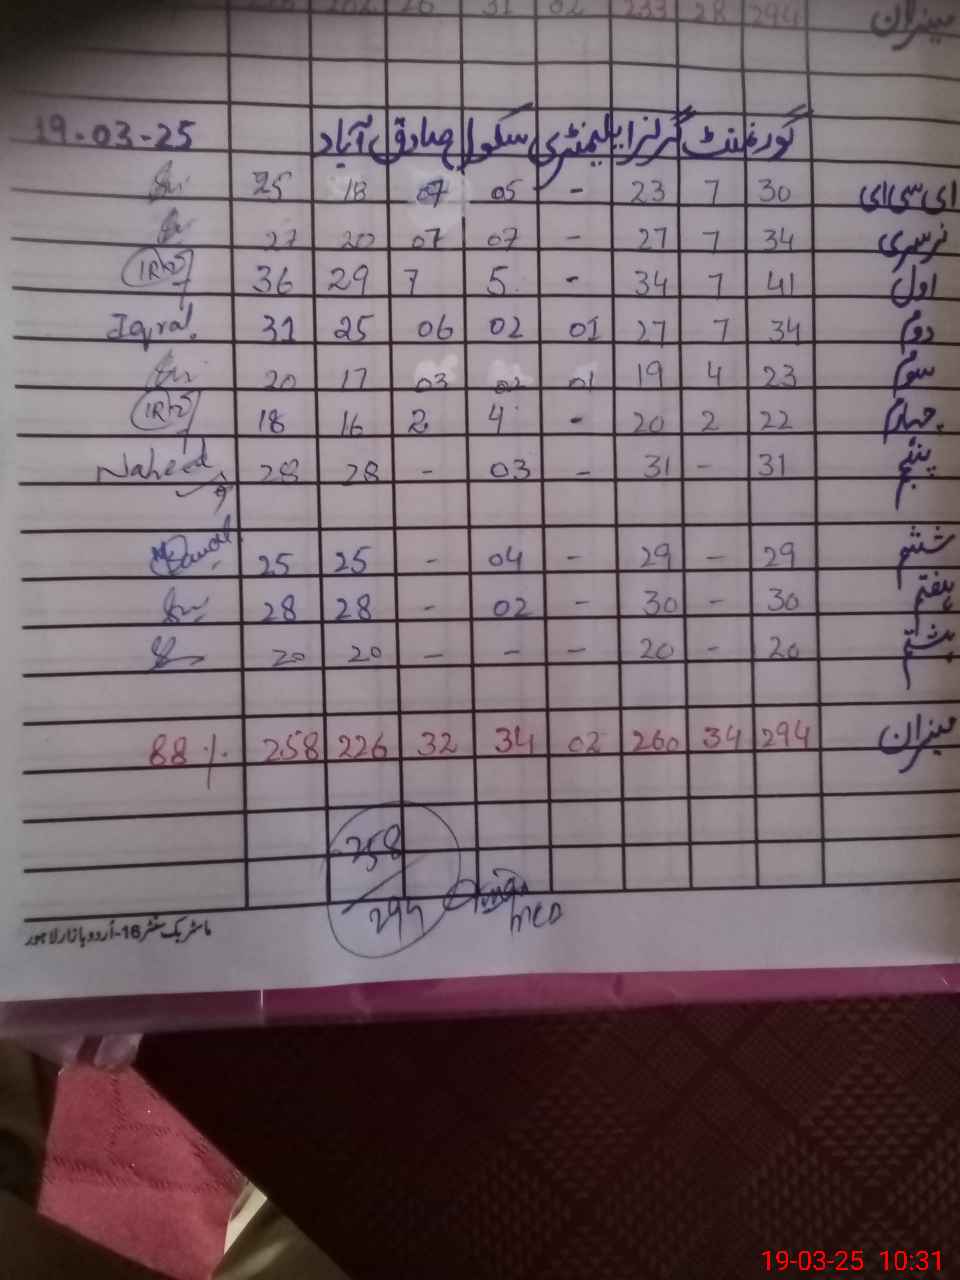 294 28 233 02 31 26 میزان
گورنمنٹ گرلز ایلیمنٹری سکول صادق آباد 19-03-25
ای سی ای 30 7 23 - 05 07 18 25
نرسری 34 7 27 - 07 07 20 27
اول 41 7 34 - 5 7 29 36
دوم 34 7 27 01 02 06 25 31 Iqra
سوم 23 4 19 01 02 03 17 20
چہارم 22 2 20 - 4 2 16 18
پنجم 31 - 31 - 03 - 28 28 Naheed
ششم 29 - 29 - 04 - 25 25
ہفتم 30 - 30 - 02 - 28 28
ہشتم 20 - 20 - - - 20 20
میزان 294 34 260 02 34 32 226 258 88 %
258
294
ماسٹر بک سنٹر 16-اردو بازار لاہور
19-03-25 10:31